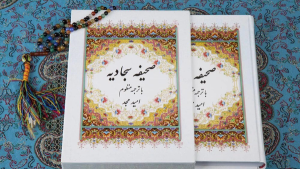 صحیفه سجادیه
با ترجمه منظوم
امید مجد
صحیفه
با ترجمه
امید مجد